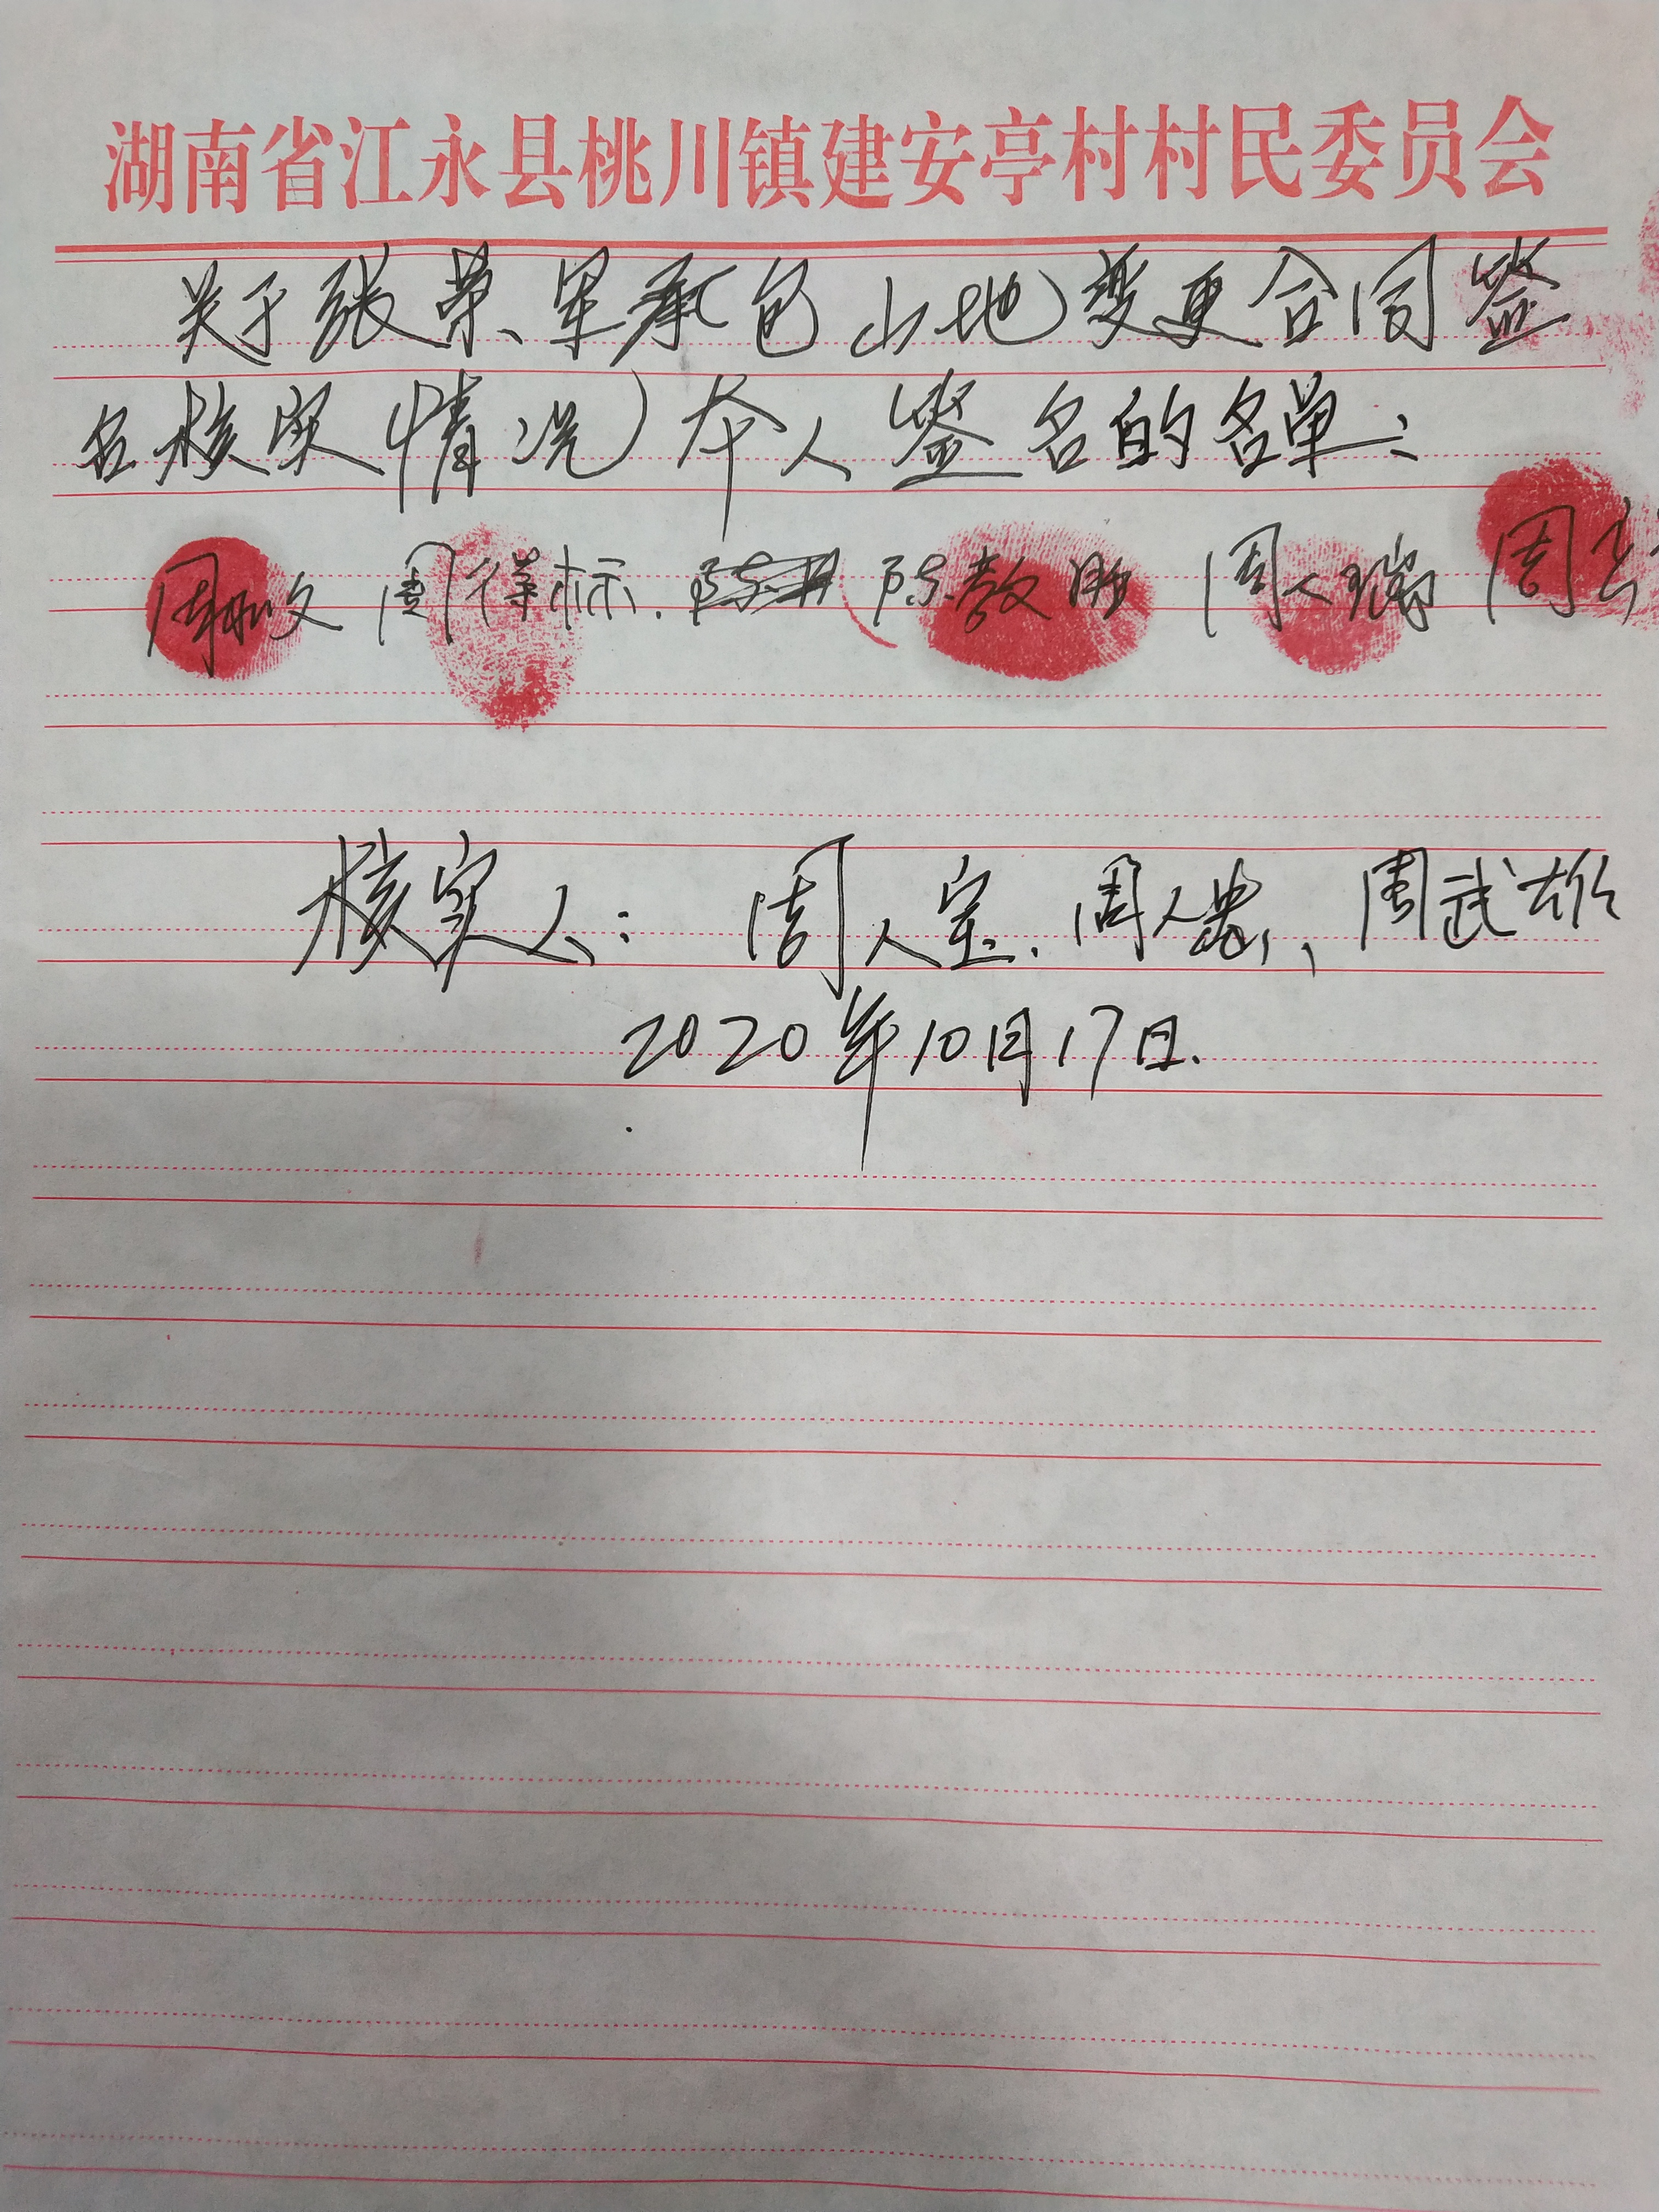 湖南省江永县桃川镇建安亭村村民委员会
关于张荣军承包山地变更合同签
名核实情况本人签名的名单：
周 文 周得标. 陈教 周人瑞 周
核实人：周人宝. 周人忠、周武雄
2020年10月17日.